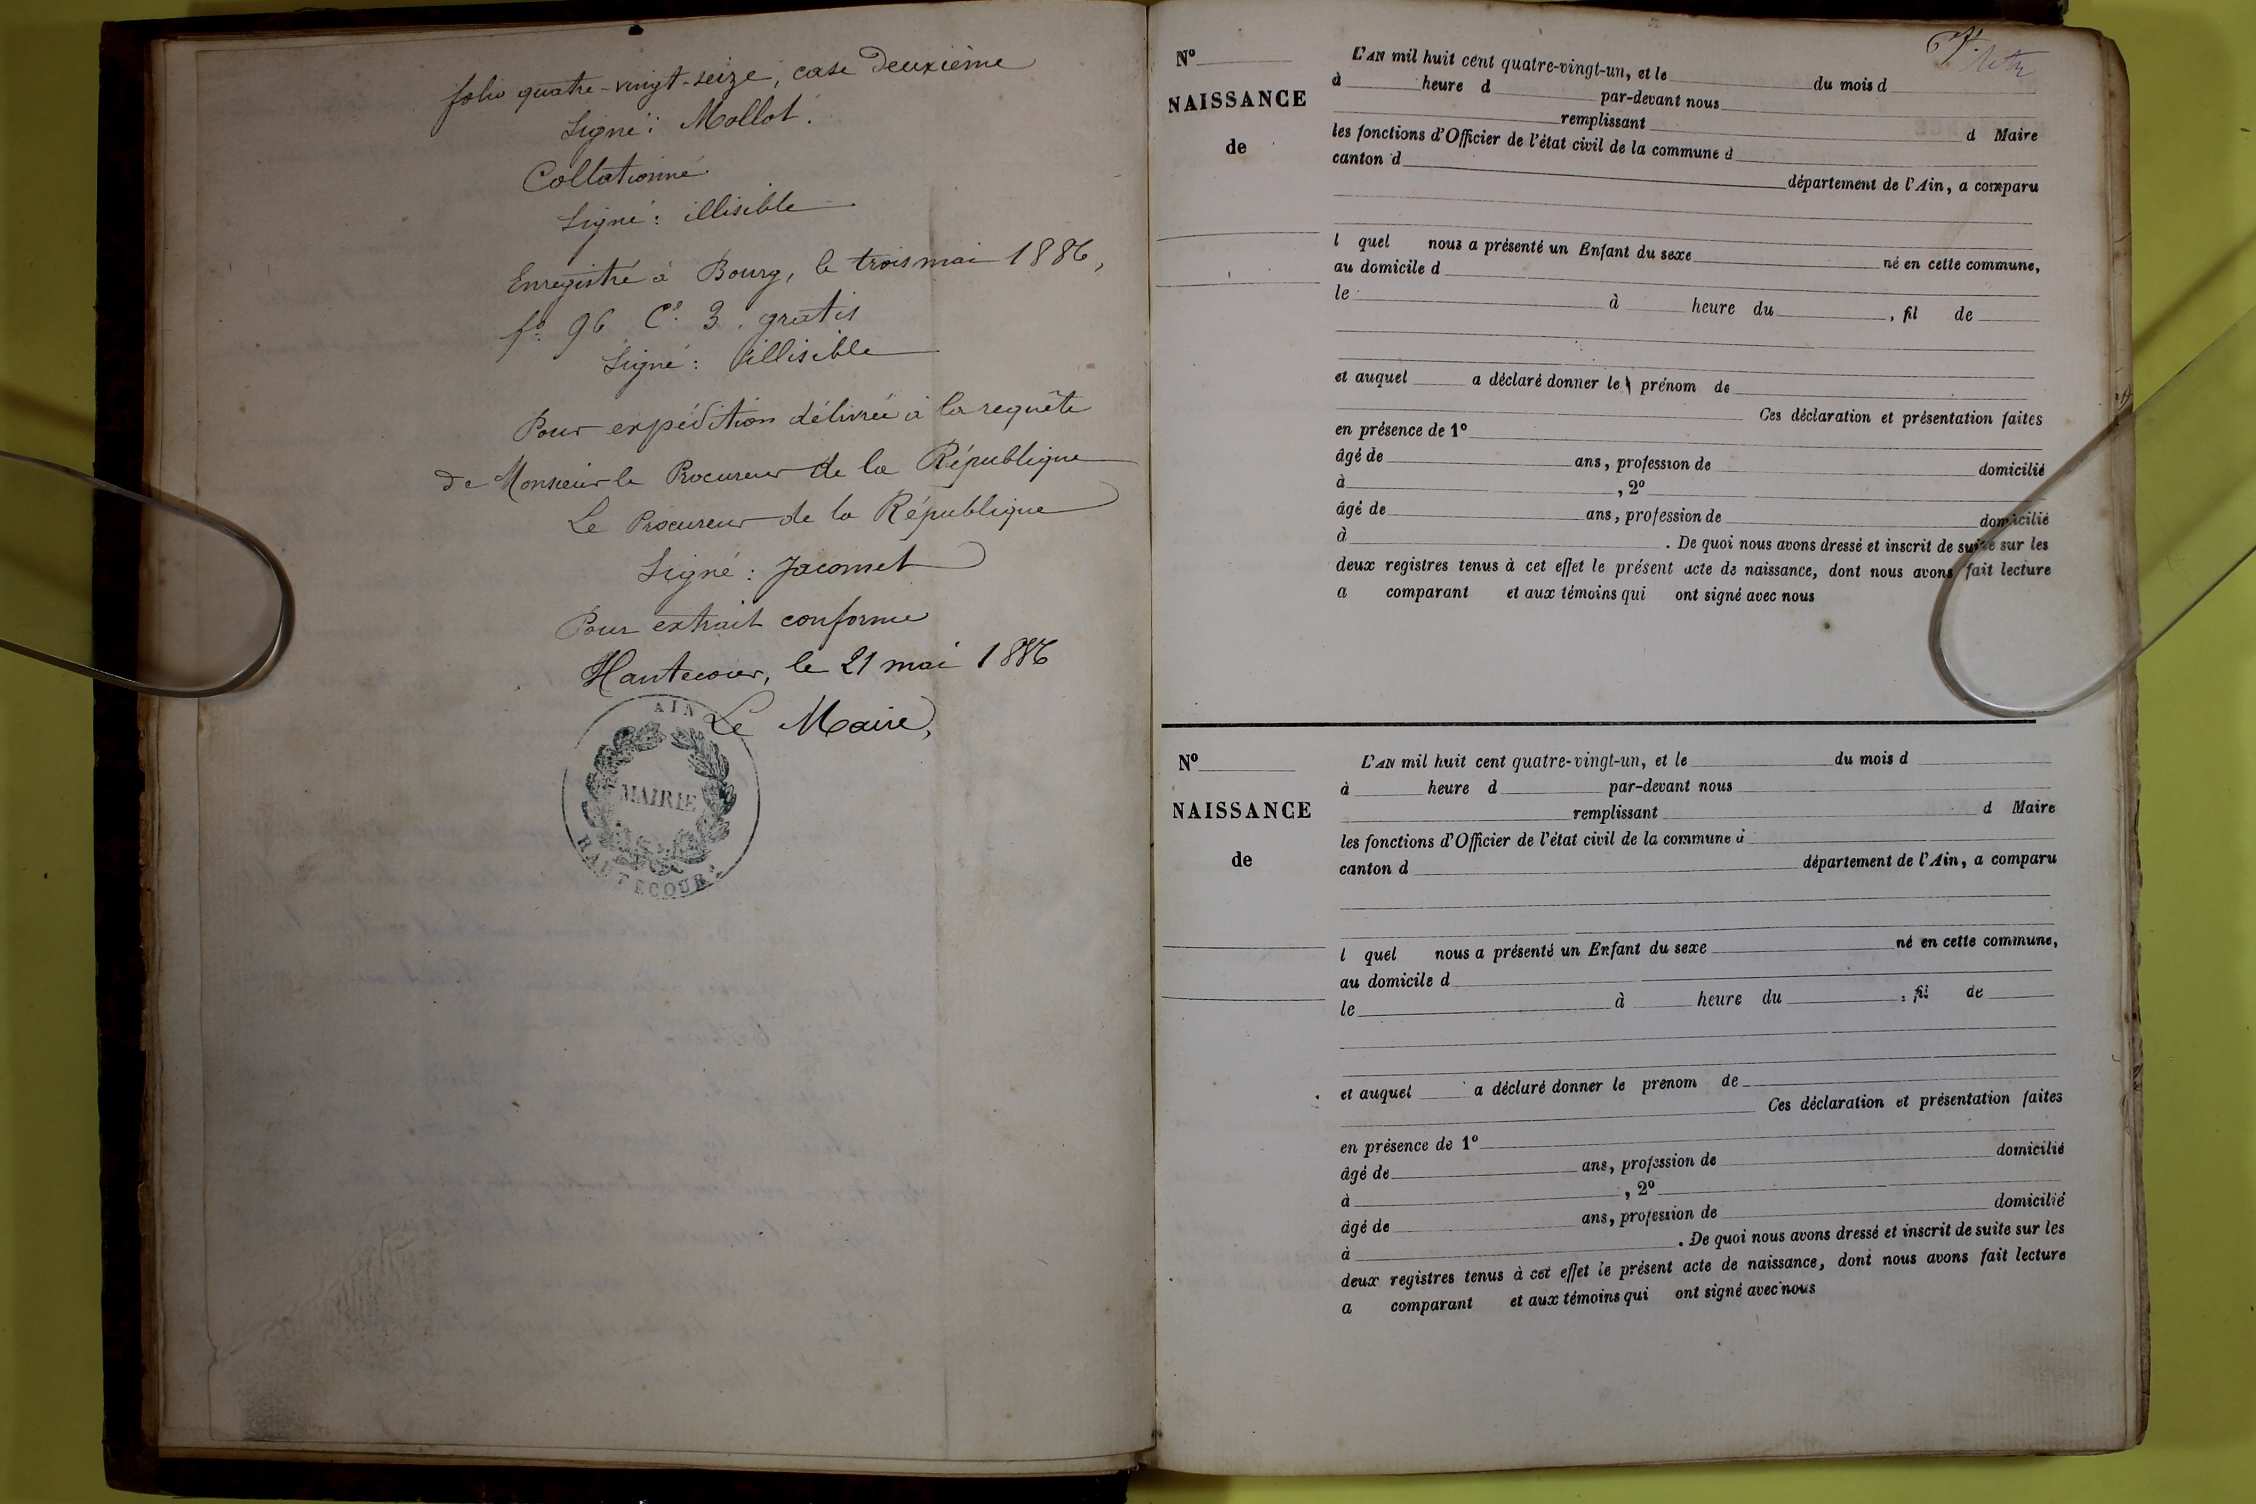 folio quatre-vingt-seize, case Deuxième
Signé: Mollot.
Collationné
Signé: illisible
Enregistré à Bourg, le trois mai 1886,
fo. 96 Ce. 3. gratis
Signé: illisible
Pour expédition délivrée à la requête
de Monsieur le Procureur de la République
Le Procureur de la République
Signé: Jacomet
Pour extrait conforme
Hautecour, le 21 mai 1886
Le Maire,
AIN
MAIRIE
HAUTECOUR
No
NAISSANCE
de
L'AN mil huit cent quatre-vingt-un, et le du mois d
à heure d par-devant nous
remplissant d Maire
les fonctions d'Officier de l'état civil de la commune d
canton d département de l'Ain, a comparu
l quel nous a présenté un Enfant du sexe né en cette commune,
au domicile d
le à heure du , fil de
et auquel a déclaré donner le prénom de
Ces déclaration et présentation faites
en présence de 1o
âgé de ans, profession de domicilié
à , 2o
âgé de ans, profession de domicilié
à . De quoi nous avons dressé et inscrit de suite sur les
deux registres tenus à cet effet le présent acte de naissance, dont nous avons fait lecture
a comparant et aux témoins qui ont signé avec nous
No
NAISSANCE
de
L'AN mil huit cent quatre-vingt-un, et le du mois d
à heure d par-devant nous
remplissant d Maire
les fonctions d'Officier de l'état civil de la commune d
canton d département de l'Ain, a comparu
l quel nous a présenté un Enfant du sexe né en cette commune,
au domicile d
le à heure du , fil de
et auquel a déclaré donner le prenom de
Ces déclaration et présentation faites
en présence de 1o
âgé de ans, profession de domicilié
à , 2o
âgé de ans, profession de domicilié
à . De quoi nous avons dressé et inscrit de suite sur les
deux registres tenus à cet effet le présent acte de naissance, dont nous avons fait lecture
a comparant et aux témoins qui ont signé avec nous